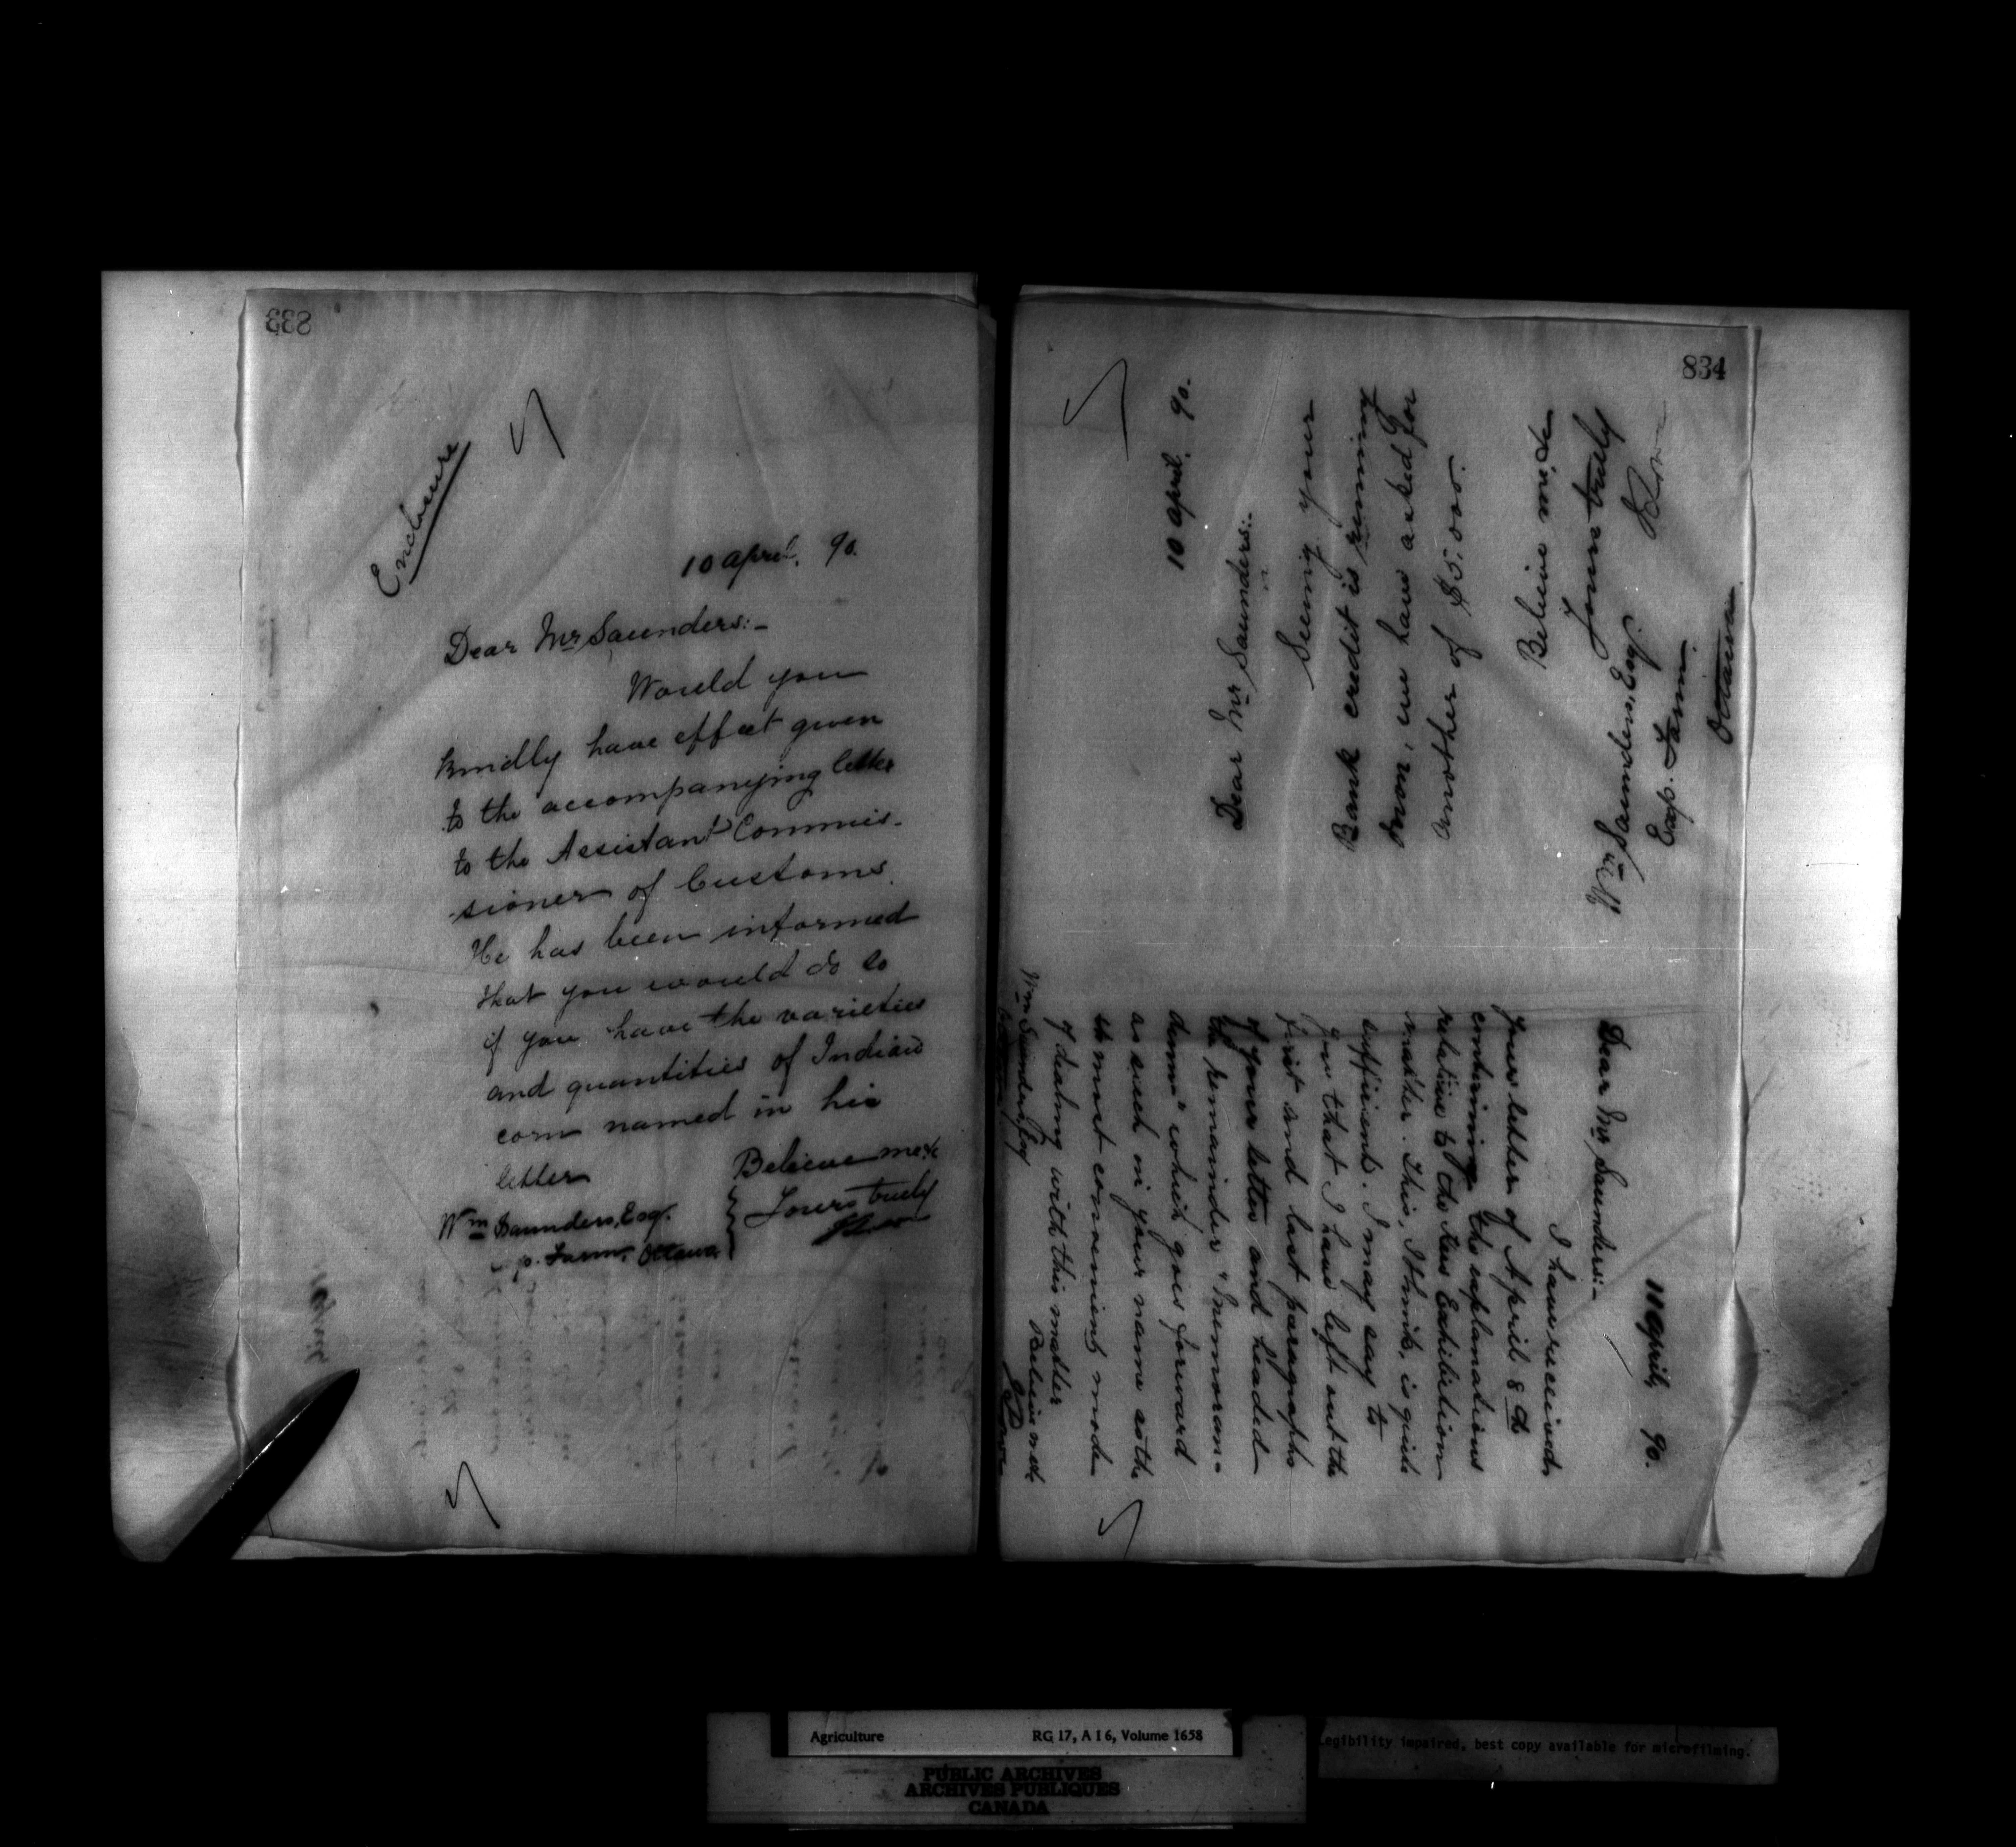 833
Enclosure
10 April. 90.
Dear Mr Saunders:-
Would you
kindly have effect given
to the accompanying letter
to the Assistant Commis-
sioner of Customs.
He has been informed
that you would do so
if you have the varieties
and quantities of Indian
corn named in his
letter
Believe me &c
Yours truly
Wm Saunders, Esq.
p. Farm, Ottawa
834
10 April. 90.
Dear Mr Saunders:-
Seeing your
Bank credit is running
down, we have asked for
another of $5.000.
Believe me &c
Yours truly
Wm Saunders, Esq.
Exp. Farm
Ottawa
11 April, 90.
Dear Mr Saunders:-
I have received
your letter of April 8th
containing the explanations
relative to the Kew Exhibition
matter. This, I think, is quite
sufficient. I may say to
you that I have left out the
first and last paragraphs
of your letter and headed
the remainder "Memoran-
dum" which goes forward
as such in your name as the
most convenient mode
of dealing with this matter
Believe me &c
Wm Saunders Esq
Agriculture
RG 17, A I 6, Volume 1658
PUBLIC ARCHIVES
ARCHIVES PUBLIQUES
CANADA
Legibility impaired, best copy available for microfilming.